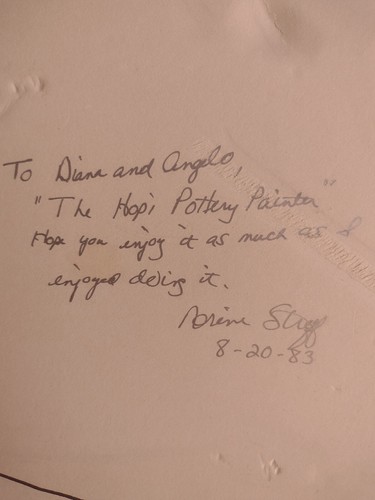 To Diana and Angelo,
"The Hopi Pottery Painter"
Hope you enjoy it as much as I
enjoyed doing it.
8-20-83